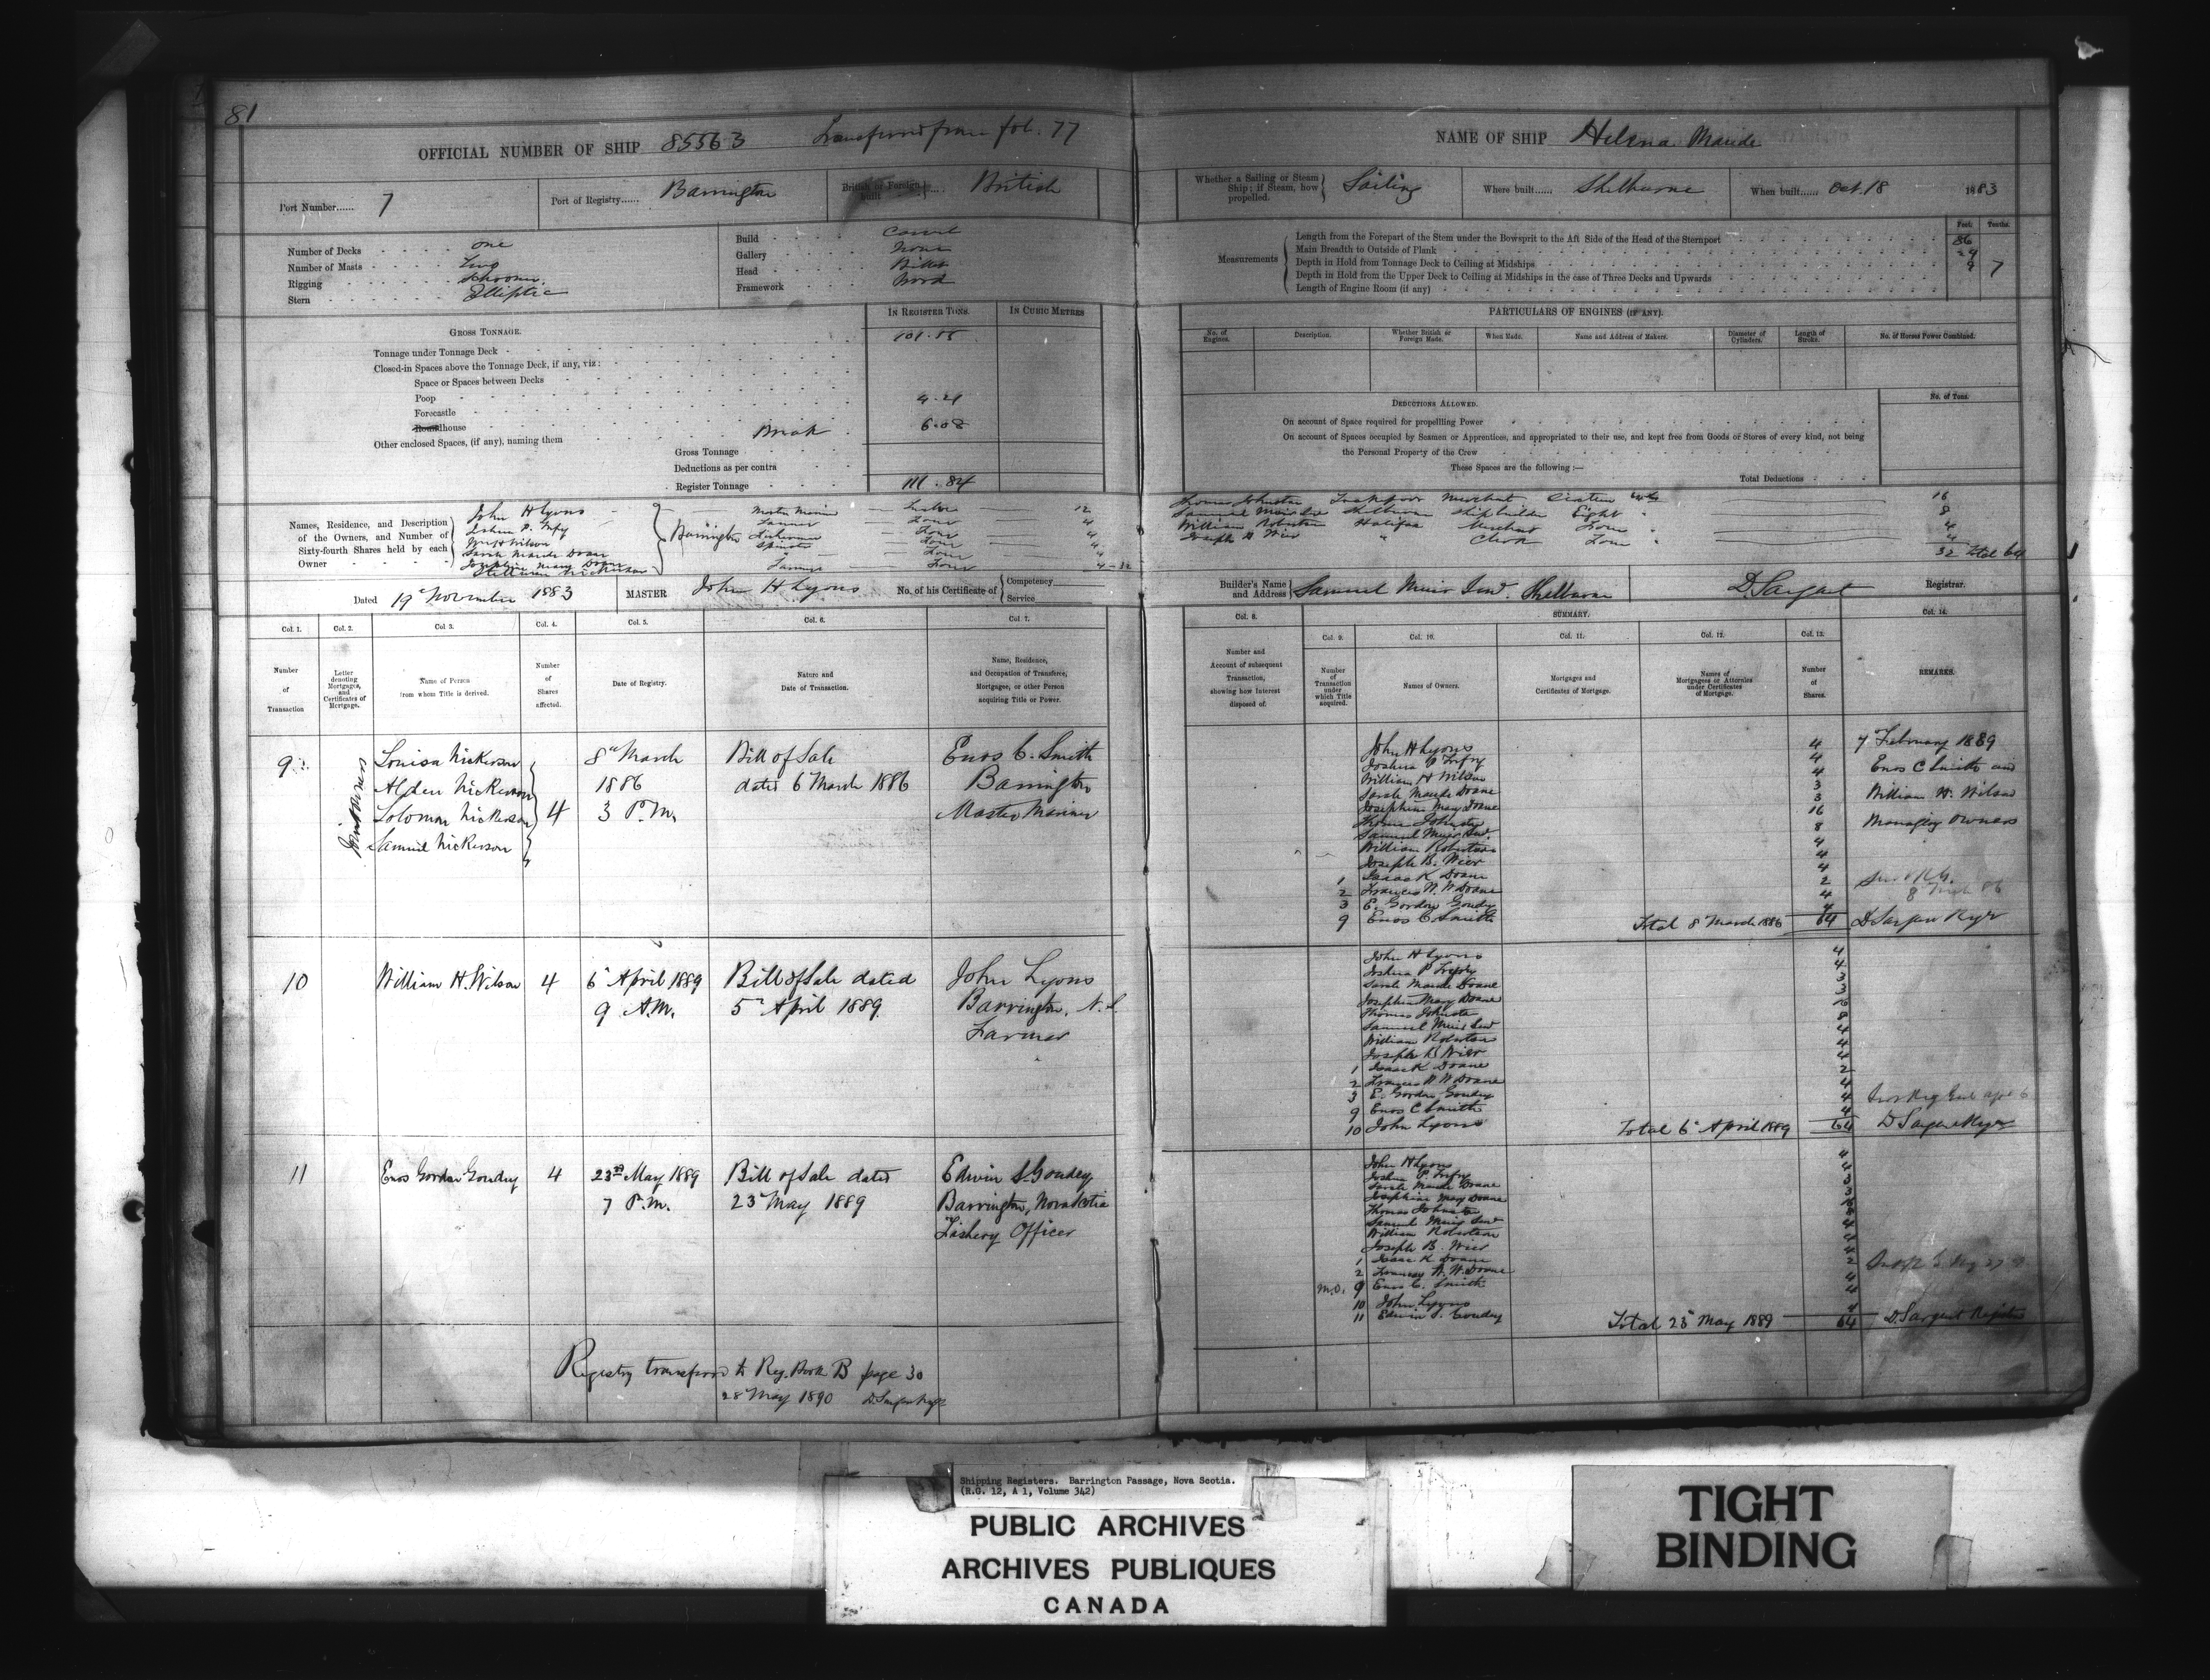 81
OFFICIAL NUMBER OF SHIP 85563 Transferred from fol. 77
Port Number...... 7
Port of Registry...... Barrington
British or Foreign built British
Number of Decks one
Number of Masts Two
Rigging Schooner
Stern Elliptic
Build Carvel
Gallery None
Head Billet
Framework Wood
GROSS TONNAGE.
IN REGISTER TONS.
IN CUBIC METRES
Tonnage under Tonnage Deck
Closed-in Spaces above the Tonnage Deck, if any, viz:
Space or Spaces between Decks
Poop
Forecastle
Roundhouse
Other enclosed Spaces, (if any), naming them Break 6.08
Gross Tonnage
Deductions as per contra
Register Tonnage 111.84
Names, Residence, and Description of the Owners, and Number of Sixty-fourth Shares held by each Owner
John H Lyons
Wm H Wilson
Sarah Maude Doane
Josephine Mary Doane
Barrington
Dated 19 November 1883
MASTER John H Lyons
No. of his Certificate of Competency Service
Col. 1. Col. 2. Col. 3. Col. 4. Col. 5. Col. 6. Col. 7.
Number of Transaction
Letter denoting Mortgages, and Certificates of Mortgage.
Name of Person from whom Title is derived.
Number of Shares affected.
Date of Registry.
Nature and Date of Transaction.
Name, Residence, and Occupation of Transferee, Mortgagee, or other Person acquiring Title or Power.
9
Joint Owners
Louisa Nickerson
Alden Nickerson
Solomon Nickerson
Samuel Nickerson
4
8th March
1886
3 P.M.
Bill of Sale
dated 6 March 1886
Enos C. Smith
Barrington
Master Mariner
10
William H. Wilson
4
6 April 1889
9 A.M.
Bill of Sale dated
5 April 1889
John Lyons
Barrington, N.S.
Farmer
11
Enos Gordon Goudey
4
23rd May 1889
7 P.M.
Bill of Sale dated
23 May 1889
Edwin S. Goudey
Barrington, Nova Scotia
Fishery Officer
Registry transferred to Reg. Book B page 30
28 May 1890
NAME OF SHIP Helena Maude
Whether a Sailing or Steam Ship; if Steam, how propelled. Sailing
Where built...... Shelburne
When built...... Oct. 18 1883
Measurements
Feet. Tenths.
Length from the Forepart of the Stem under the Bowsprit to the Aft Side of the Head of the Sternport 86
Main Breadth to Outside of Plank 24
Depth in Hold from Tonnage Deck to Ceiling at Midships 9 7
Depth in Hold from the Upper Deck to Ceiling at Midships in the case of Three Decks and Upwards
Length of Engine Room (if any)
PARTICULARS OF ENGINES (IF ANY).
No. of Engines.
Description.
Whether British or Foreign Made.
When Made.
Name and Address of Makers.
Diameter of Cylinders.
Length of Stroke.
No. of Horses Power Combined.
DEDUCTIONS ALLOWED.
No. of Tons.
On account of Space required for propelling Power
On account of Spaces occupied by Seamen or Apprentices, and appropriated to their use, and kept free from Goods or Stores of every kind, not being
the Personal Property of the Crew
These Spaces are the following :—
Total Deductions
William Robertson Halifax Merchant Four 4
32 total 64
Builder's Name and Address Samuel Muir Senr. Shelburne
D. Sargent Registrar.
Col. 8. SUMMARY. Col. 14.
Col. 9. Col. 10. Col. 11. Col. 12. Col. 13.
Number and Account of subsequent Transaction, showing how Interest disposed of.
Number of Transaction under which Title acquired.
Names of Owners.
Mortgages and Certificates of Mortgage.
Names of Mortgagees or Attornies under Certificates of Mortgage.
Number of Shares.
REMARKS.
John H Lyons 4
Joshua P Trefry 4
William H Wilson 4
Sarah Maude Doane 3
Josephine Mary Doane 3
Thomas Johnston 16
Samuel Muir Senr. 8
William Robertson 4
Joseph B. Wier 4
1 Isaac K Doane 4
2 Frances W. W Doane 2
3 E. Gordon Goudey 4
9 Enos C Smith 4
Total 8 March 1886 64
7 February 1889
Enos C Smith and
William H. Wilson
Managing Owners
D Sargent Regr
John H Lyons 4
Joshua P Trefry 4
Sarah Maude Doane 3
Josephine Mary Doane 3
Thomas Johnston 16
Samuel Muir Senr 8
William Robertson 4
Joseph B Wier 4
1 Isaac K Doane 4
2 Frances W W Doane 2
3 E. Gordon Goudey 4
9 Enos C Smith 4
10 John Lyons 4
Total 6 April 1889 64
D Sargent Regr
John H Lyons
Joshua P. Trefry
Sarah Maude Doane
Josephine May Doane
Thomas Johnston
Samuel Muir Senr
William Robertson
Joseph B. Wier
1 Isaac K Doane
2 Frances W. W. Doane
M.O. 9 Enos C. Smith
10 John Lyons
11 Edwin S. Goudey
Total 23 May 1889 64
D. Sargent Registrar
Shipping Registers. Barrington Passage, Nova Scotia.
(R.G. 12, A 1, Volume 342)
PUBLIC ARCHIVES
ARCHIVES PUBLIQUES
CANADA
TIGHT
BINDING